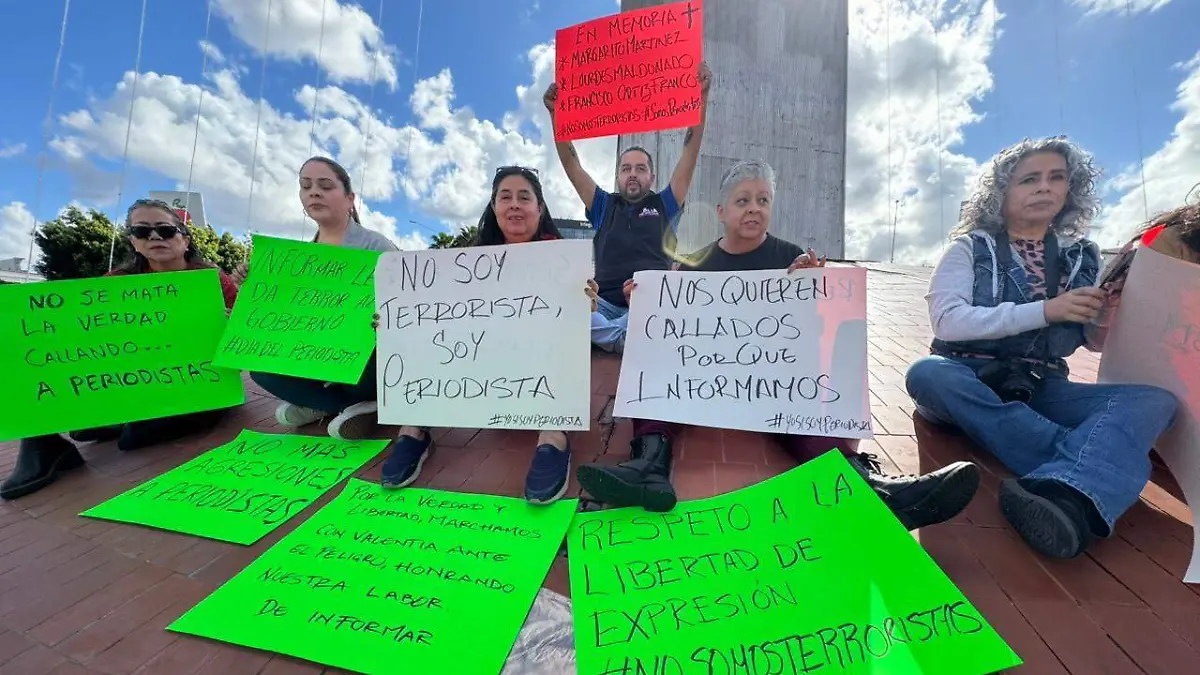 EN MEMORIA
* MARGARITO MARTINEZ
* LOURDES MALDONADO
* FRANCISCO ORTIZ FRANCO
#NOSOMOSTERRORISTAS #SomosPeriodistas
NO SE MATA
LA VERDAD
CALLANDO...
A PERIODISTAS
INFORMAR LE
DA TERROR AL
GOBIERNO
#DIADELPERIODISTA
NO SOY
TERRORISTA,
SOY
PERIODISTA
#YOSISOYPERIODISTA
NOS QUIEREN
CALLADOS
PORQUE
INFORMAMOS
NO MAS
AGRESIONES
A PERIODISTAS
POR LA VERDAD Y
LIBERTAD, MARCHAMOS
CON VALENTIA ANTE
EL PELIGRO, HONRANDO
NUESTRA LABOR
DE INFORMAR
RESPETO A LA
LIBERTAD DE
EXPRESIÓN
#NOSOMOSTERRORISTAS